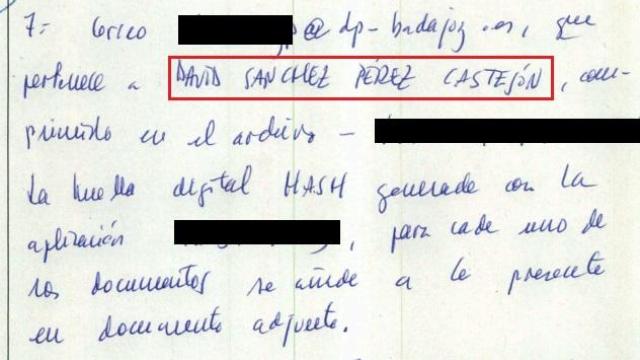 7- Correo @dp-badajoz.es, que
pertenece a DAVID SÁNCHEZ PÉREZ CASTEJÓN, com-
primido en el archivo -
La huella digital HASH generada con la
aplicación , para cada uno de
los documentos se añade a la presente
en documento adjunto.